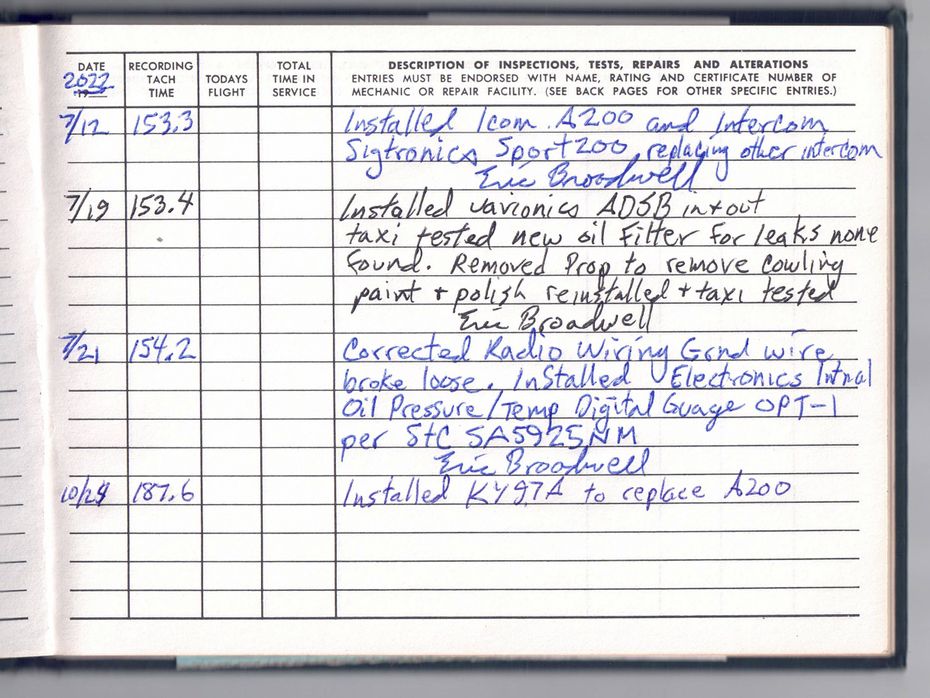 DATE RECORDING TACH TIME TODAYS FLIGHT TOTAL TIME IN SERVICE DESCRIPTION OF INSPECTIONS, TESTS, REPAIRS AND ALTERATIONS
ENTRIES MUST BE ENDORSED WITH NAME, RATING AND CERTIFICATE NUMBER OF
MECHANIC OR REPAIR FACILITY. (SEE BACK PAGES FOR OTHER SPECIFIC ENTRIES.)
2022
19
7/12 153.3 Installed Icom A200 and Intercom
Sigtronics Sport200 replacing other intercom
Eric Broadwell
7/19 153.4 Installed uavionics ADSB in+out
taxi tested new oil filter for leaks none
found. Removed Prop to remove cowling
paint + polish reinstalled + taxi tested
Eric Broadwell
7/21 154.2 Corrected Radio Wiring Grnd wire
broke loose. Installed Electronics Intnal
Oil Pressure/Temp Digital Guage OPT-1
per StC SA5925NM
Eric Broadwell
187.6 Installed KY97A to replace A200